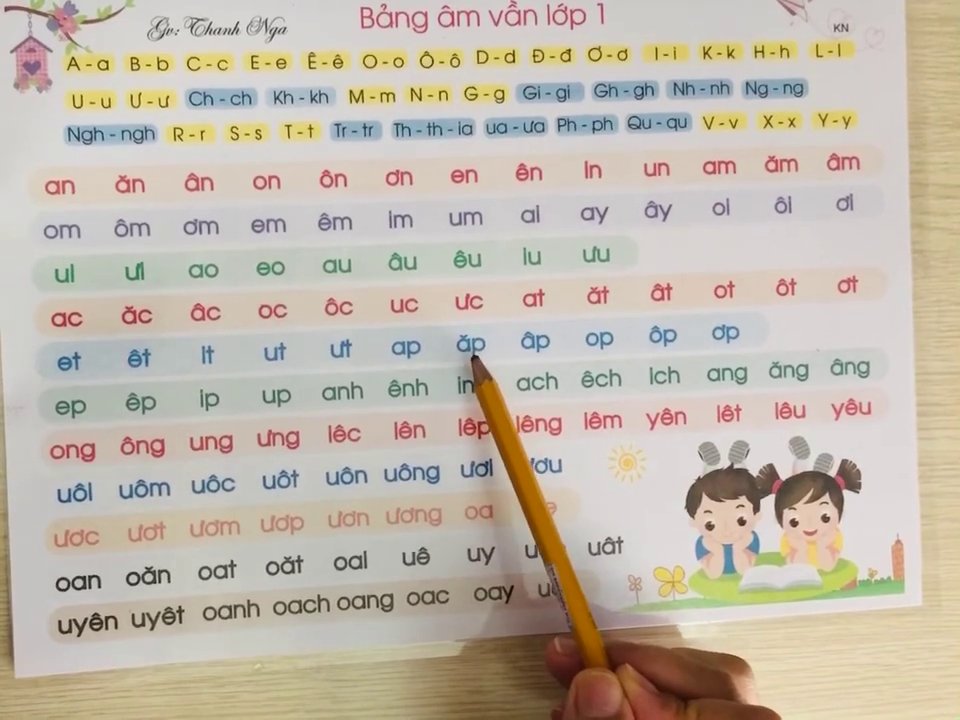 Bảng âm vần lớp 1
Gv: Thanh Nga
KN
A - a B - b C - c E - e Ê - ê O - o Ô - ô D - d Đ - đ Ơ - ơ I - i K - k H - h L - l
U - u Ư - ư Ch - ch Kh - kh M - m N - n G - g Gi - gi Gh - gh Nh - nh Ng - ng
Ngh - ngh R - r S - s T - t Tr - tr Th - th - ia ua - ưa Ph - ph Qu - qu V - v X - x Y - y
an ăn ân on ôn ơn en ên in un am ăm âm
om ôm ơm em êm im um ai ay ây oi ôi ơi
ui ưi ao eo au âu êu iu ưu
ac ăc âc oc ôc uc ưc at ăt ât ot ôt ơt
et êt it ut ưt ap ăp âp op ôp ơp
ep êp ip up anh ênh ach êch ich ang ăng âng
ong ông ung ưng iêc iên iêp iêng iêm yên iêt iêu yêu
uôi uôm uôc uôt uôn uông ươi ươu
ươc ươt ươm ươp ươn ương oa
oan oăn oat oăt oai uê uy uât
uyên uyêt oanh oach oang oac oay